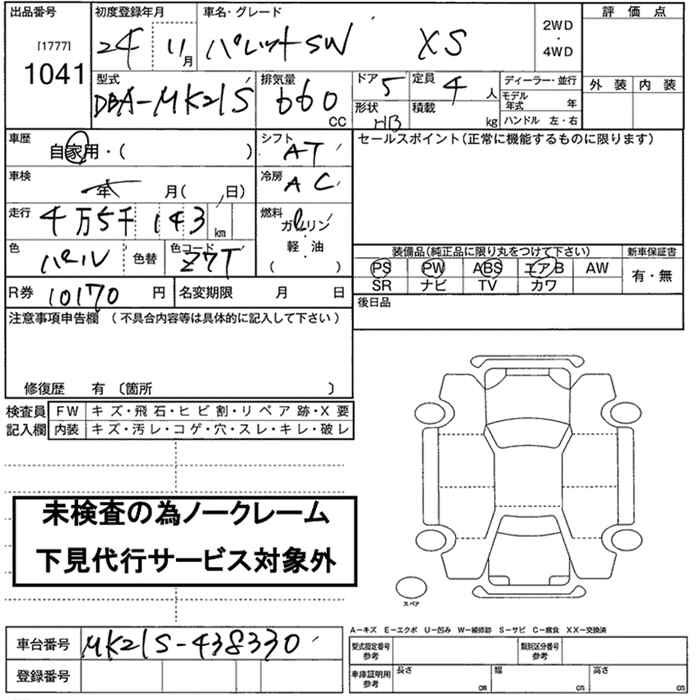 出品番号 初度登録年月 車名・グレード 評価点
[1777] 1041 24 11月 パレットSW XS 2WD・4WD
外装 内装
型式 排気量 ドア 5 定員 4人 ディーラー・並行
DBA-MK21S 660 CC 形状 HB 積載 kg モデル年式 年
ハンドル 左・右
車歴 自家用・( ) シフト AT セールスポイント(正常に機能するものに限ります)
車検 年 月( 日) 冷房 AC
走行 4万5千143km 燃料 ガソリン
軽・油
( )
色 パール 色替 色コード Z7T
装備品(純正品に限り丸をつけて下さい) 新車保証書
PS PW ABS エアB AW 有・無
SR ナビ TV カワ
R券 10170円 名変期限 月 日 後日品
注意事項申告欄 (不具合内容等は具体的に記入して下さい)
修復歴 有 〔箇所 〕
検査員 FW キズ・飛石・ヒビ割・リペア跡・X要
記入欄 内装 キズ・汚レ・コゲ・穴・スレ・キレ・破レ
未検査の為ノークレーム
下見代行サービス対象外
スペア
A-キズ E-エクボ U-凹み W-補修跡 S-サビ C-腐食 XX-交換済
車台番号 MK21S-438330
型式指定番号 参考 類別区分番号 参考
登録番号
車庫証明用 参考 長さ cm 幅 cm 高さ cm